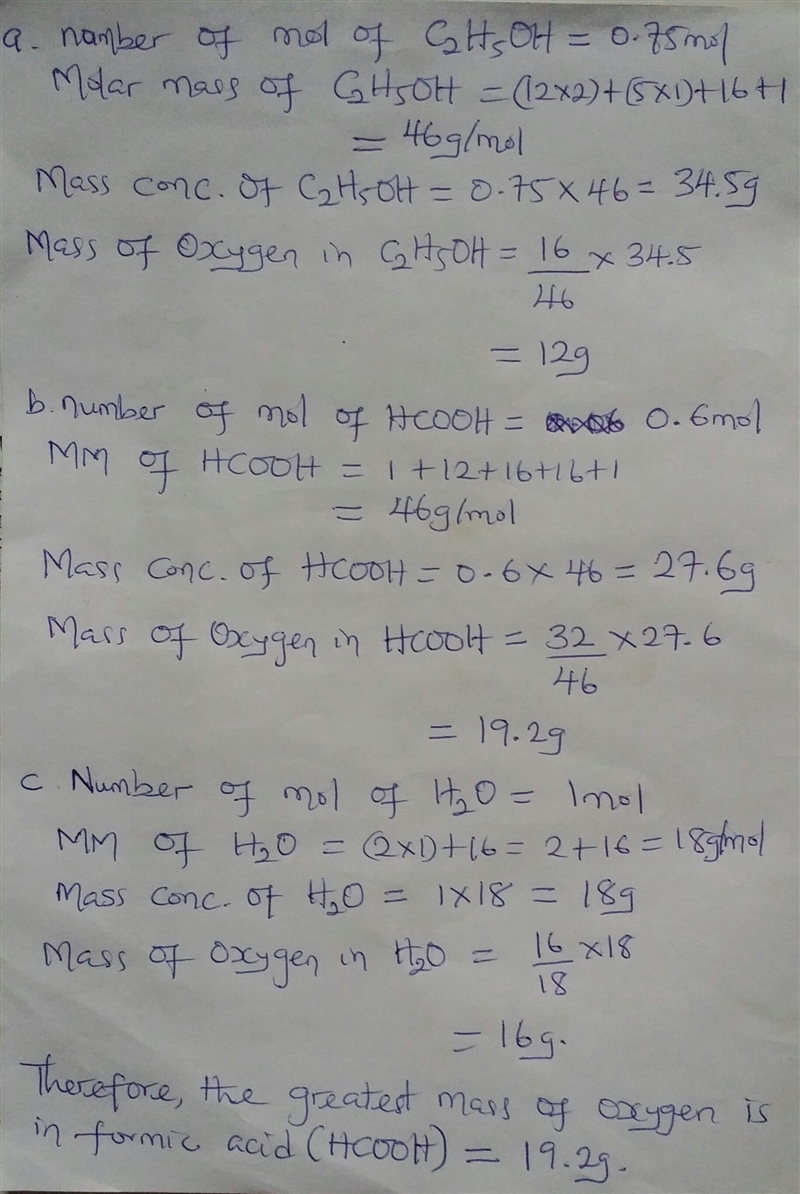 a. number of mol of C₂H₅OH = 0.75mol
Molar mass of C₂H₅OH = (12x2)+(5x1)+16+1
= 46g/mol
Mass conc. Of C₂H₅OH = 0.75 x 46 = 34.5g
Mass of Oxygen in C₂H₅OH = 16/46 x 34.5
= 12g
b. number of mol of HCOOH = 0.6mol
MM of HCOOH = 1+12+16+16+1
= 46g/mol
Mass Conc. of HCOOH = 0.6 x 46 = 27.6g
Mass of Oxygen in HCOOH = 32/46 x 27.6
= 19.2g
c. Number of mol of H₂O = 1mol
MM of H₂O = (2x1)+16 = 2+16 = 18g/mol
Mass Conc. of H₂O = 1x18 = 18g
Mass of Oxygen in H₂O = 16/18 x18
= 16g.
Therefore, the greatest mass of oxygen is
in formic acid (HCOOH) = 19.2g.